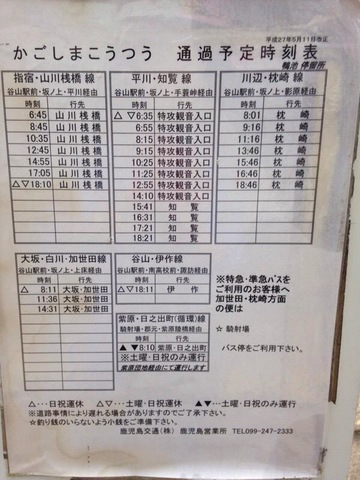 平成27年5月11日改正
かごしまこうつう 通過予定時刻表
鴨池 停留所
指宿・山川桟橋 線
谷山駅前・坂之上・平川経由
時刻 行先
6:45 山川桟橋
8:45 山川桟橋
10:35 山川桟橋
12:45 山川桟橋
14:55 山川桟橋
17:05 山川桟橋
△▽18:10 山川桟橋
平川・知覧 線
谷山駅前・坂之上・手蓑峠経由
時刻 行先
△▽6:35 特攻観音入口
7:35 特攻観音入口
8:15 特攻観音入口
9:15 特攻観音入口
10:25 特攻観音入口
11:25 特攻観音入口
12:55 特攻観音入口
14:10 特攻観音入口
15:41 知覧
16:31 知覧
17:21 知覧
18:21 知覧
川辺・枕崎 線
谷山駅前・坂之上・影原経由
時刻 行先
8:01 枕崎
9:16 枕崎
11:16 枕崎
13:46 枕崎
15:46 枕崎
16:46 枕崎
18:46 枕崎
大坂・白川・加世田線
谷山駅前・坂之上・上床経由
時刻 行先
△ 8:11 大坂・加世田
11:36 大坂・加世田
14:31 大坂・加世田
谷山・伊作線
谷山駅前・南高校前・諏訪経由
時刻 行先
△▽18:11 伊作
紫原・日之出町(循環)線
騎射場・郡元・紫原陸橋経由
時刻 行先
▲▼8:10 紫原・日之出町
※土曜・日祝のみ運行
紫原団地経由にて運行します
※特急・準急バスを
ご利用のお客様へ
加世田・枕崎方面
の便は
☆ 騎射場
バス停をご利用ください。
△…日祝運休 △▽…土曜・日祝運休 ▲▼…土曜・日祝のみ運行
※道路事情により遅れる場合がありますのでご了承下さい。
☆釣り銭のいらないよう小銭をご準備下さい。 鹿児島交通(株) 鹿児島営業所 TEL099-247-2333